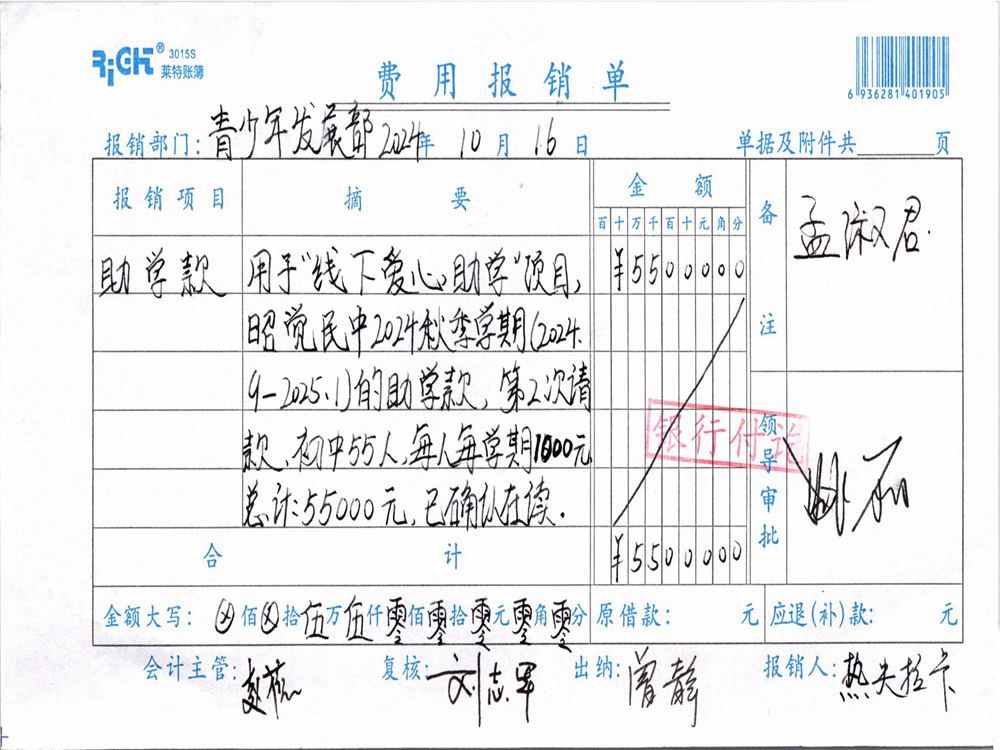 RiGHT® 3015S
莱特账簿
费用报销单
6 936281 401905
报销部门：青少年发展部 2024年 10月 16日 单据及附件共 页
报销项目 摘要 金额 备注 孟淑君.
百十万千百十元角分
助学款 用于"线下爱心助学"项目， ¥5500000
昭觉民中2024秋季学期(2024.
9-2025.1)的助学款，第2次请
款、初中55人，每人每学期1000元
总计：55000元，已确认在读.
银行付讫
领导审批
合计 ¥5500000
金额大写：⊗佰⊗拾伍万伍仟零佰零拾零元零角零分 原借款： 元 应退(补)款： 元
会计主管： 复核：刘志军 出纳：曾静 报销人：热夫拉卡